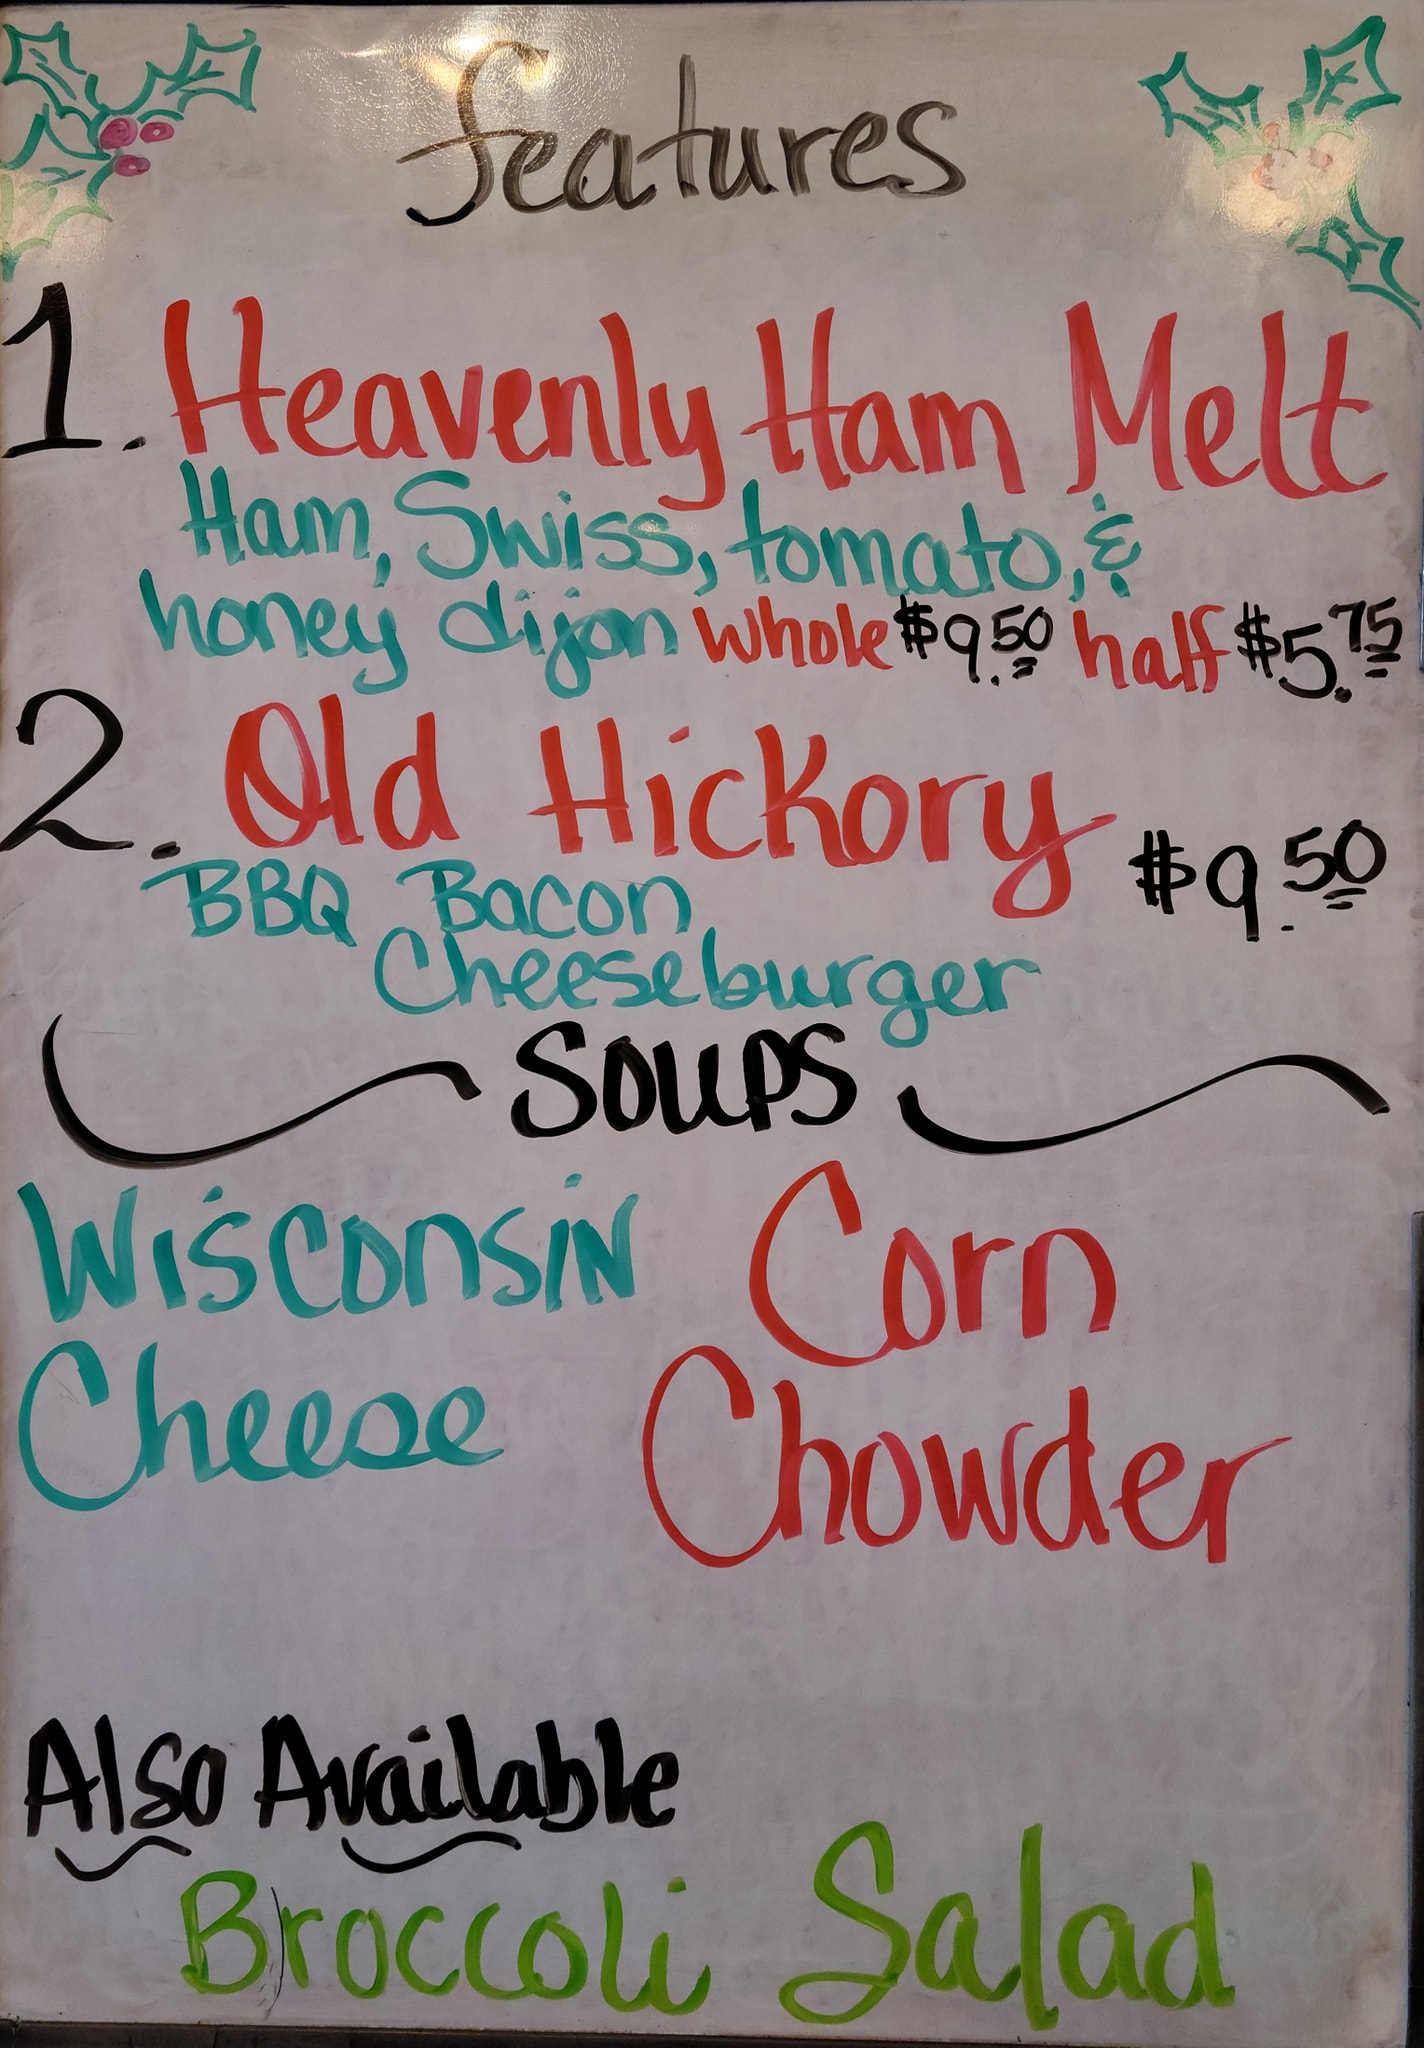 features
1. Heavenly Ham Melt
Ham, Swiss, tomato, &
honey dijon whole $9.50 half $5.75
2. Old Hickory $9.50
BBQ Bacon
Cheeseburger
Soups
Wisconsin Cheese
Corn Chowder
Also Available
Broccoli Salad